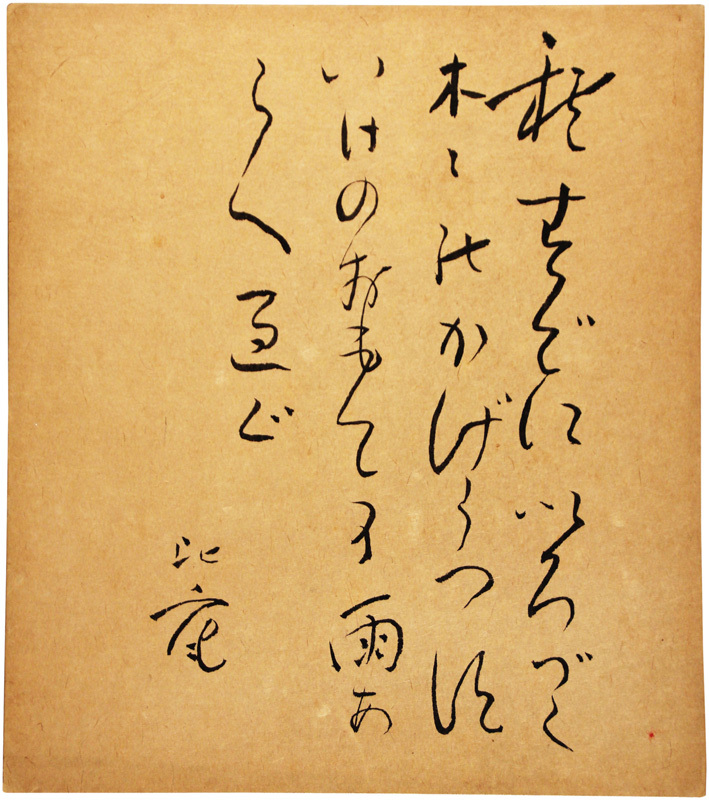 秋すでにいろづく
木々のかげうつす
いけのおもてを雨あ
らく過ぐ
比庵